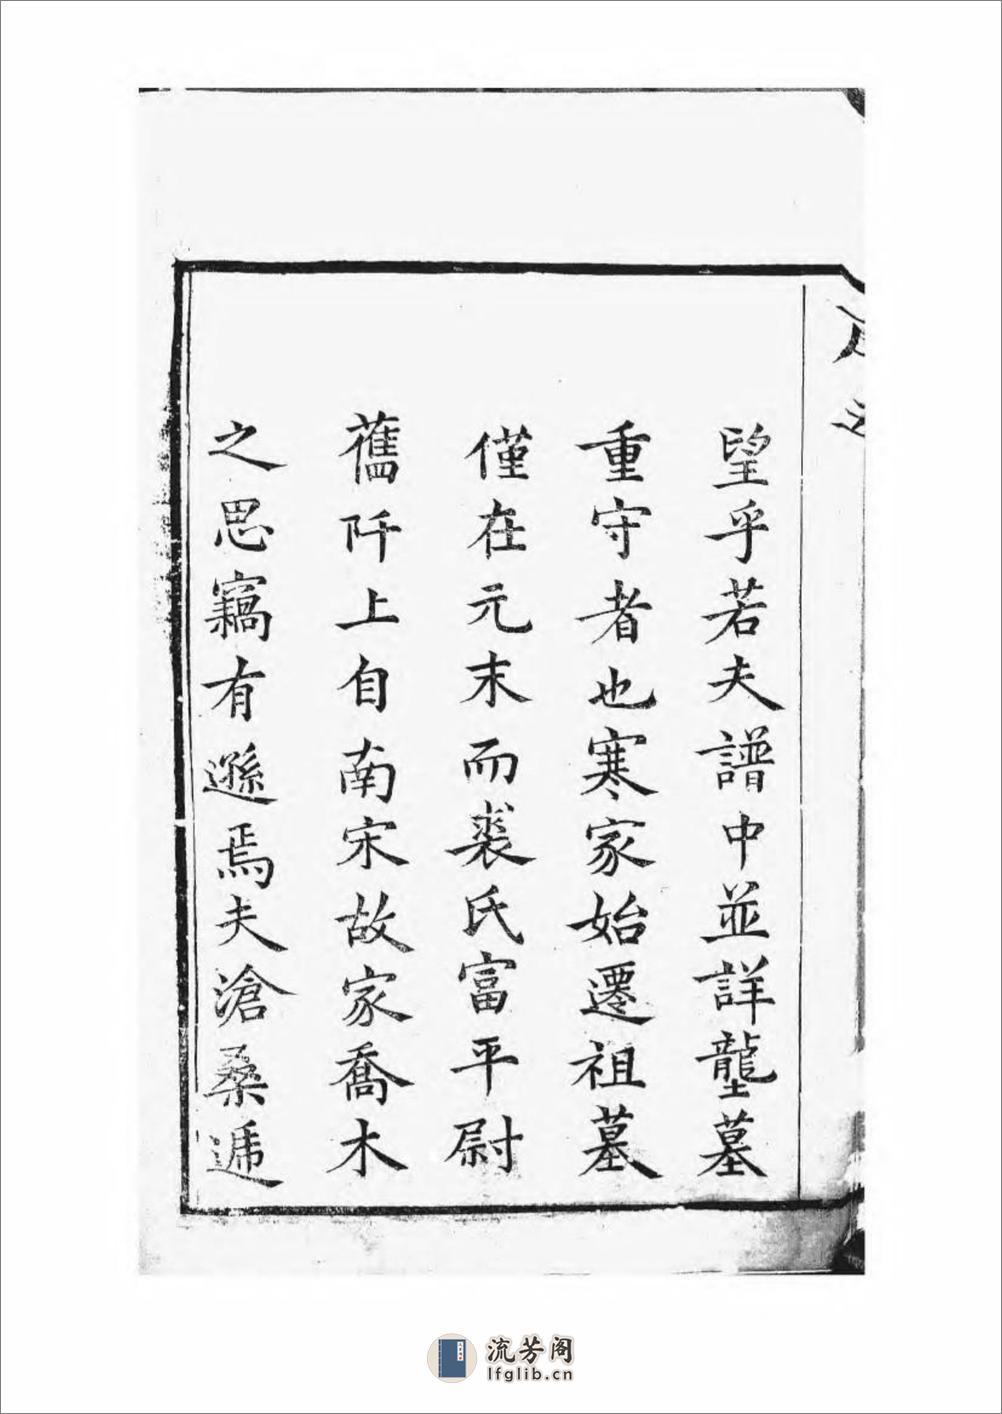 望乎若夫譜中並詳壟墓
重守者也寒家始遷祖墓
僅在元末而裘氏富平尉
舊阡上自南宋故家喬木
之思竊有遜焉夫滄桑遞
流芳阁
lfglib.cn